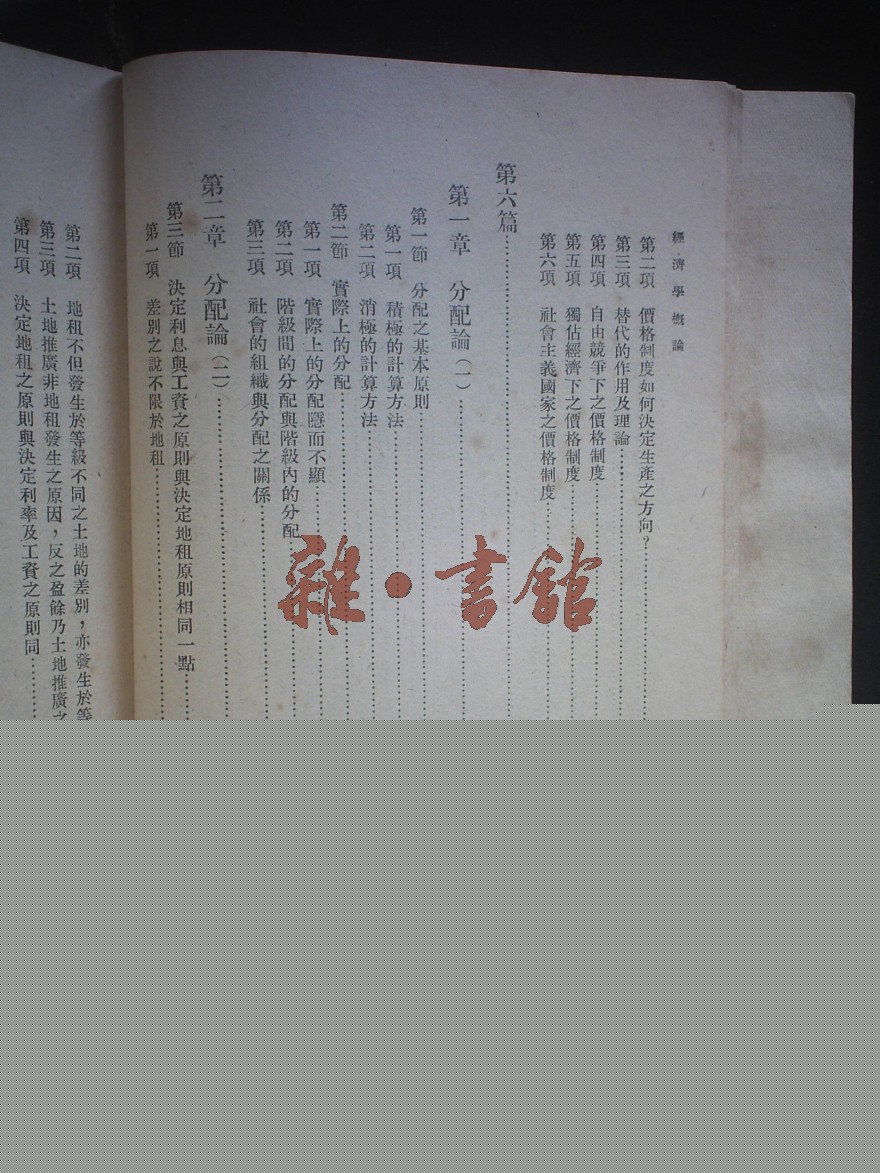 經濟學概論
第二項 價格制度如何決定生產之方向？
第三項 替代的作用及理論
第四項 自由競爭下之價格制度
第五項 獨佔經濟下之價格制度
第六項 社會主義國家之價格制度
第六篇
第一章 分配論（一）
第一節 分配之基本原則
第一項 積極的計算方法
第二項 消極的計算方法
第二節 實際上的分配
第一項 實際上的分配隱而不顯
第二項 階級間的分配與階級內的分配
第三項 社會的組織與分配之關係
第二章 分配論（二）
第三節 決定利息與工資之原則與決定地租原則相同一點
第一項 差別之說不限於地租
第二項 地租不但發生於等級不同之土地的差別，亦發生於等
第三項 土地推廣非地租發生之原因，反之盈餘乃土地推廣之
第四項 決定地租之原則與決定利率及工資之原則同
雜·書館